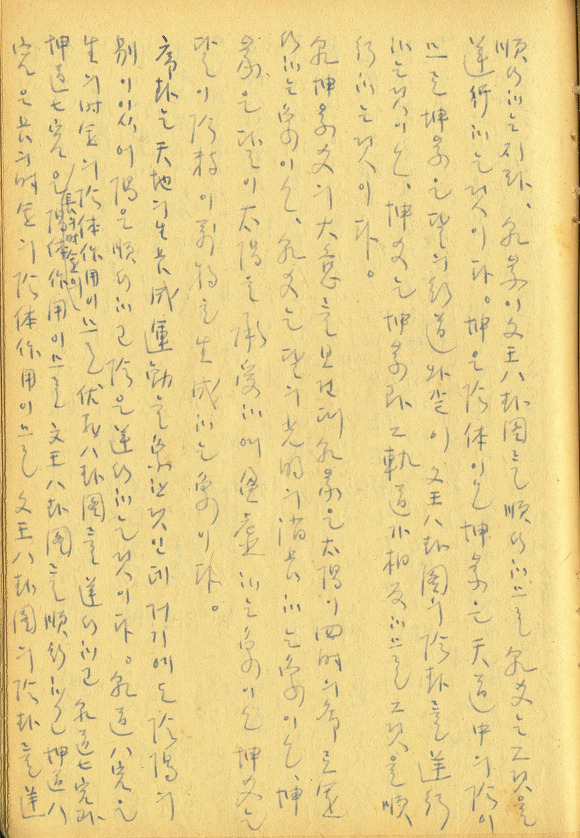 順行하는지라、乾象이文王八卦圖를順行하므로乾爻는그것을
逆行하는것이다。坤은陰体이니坤象은天道中의陰이
므로坤象은달의軌道와같이文王八卦圖의陰卦를逆行
하는것이니、坤爻는坤象과그軌道가相反하므로그것을順
行하는것이다。
乾坤象爻의大意를보건대乾象은太陽의四時의序로運
行하는象이니、乾爻는달의光明의消長하는象이니坤
象은달이太陽을承受하야盈虛하는象이니坤爻는
달의陰精이萬物을生成하는象이다。
序卦는天地의生長成運動을象한것인데저기에도陰陽의
別이있어陽은順行하고陰은逆行하는것이다。乾道八宮은
生의時運의陰体作用이므로伏羲八卦圖를逆行하고乾道七宮과
坤道七宮은長의時運의陽体作用이므로文王八卦圖를順行하고坤道八
宮은長의時運의陰体作用이므로文王八卦圖의陰卦를逆